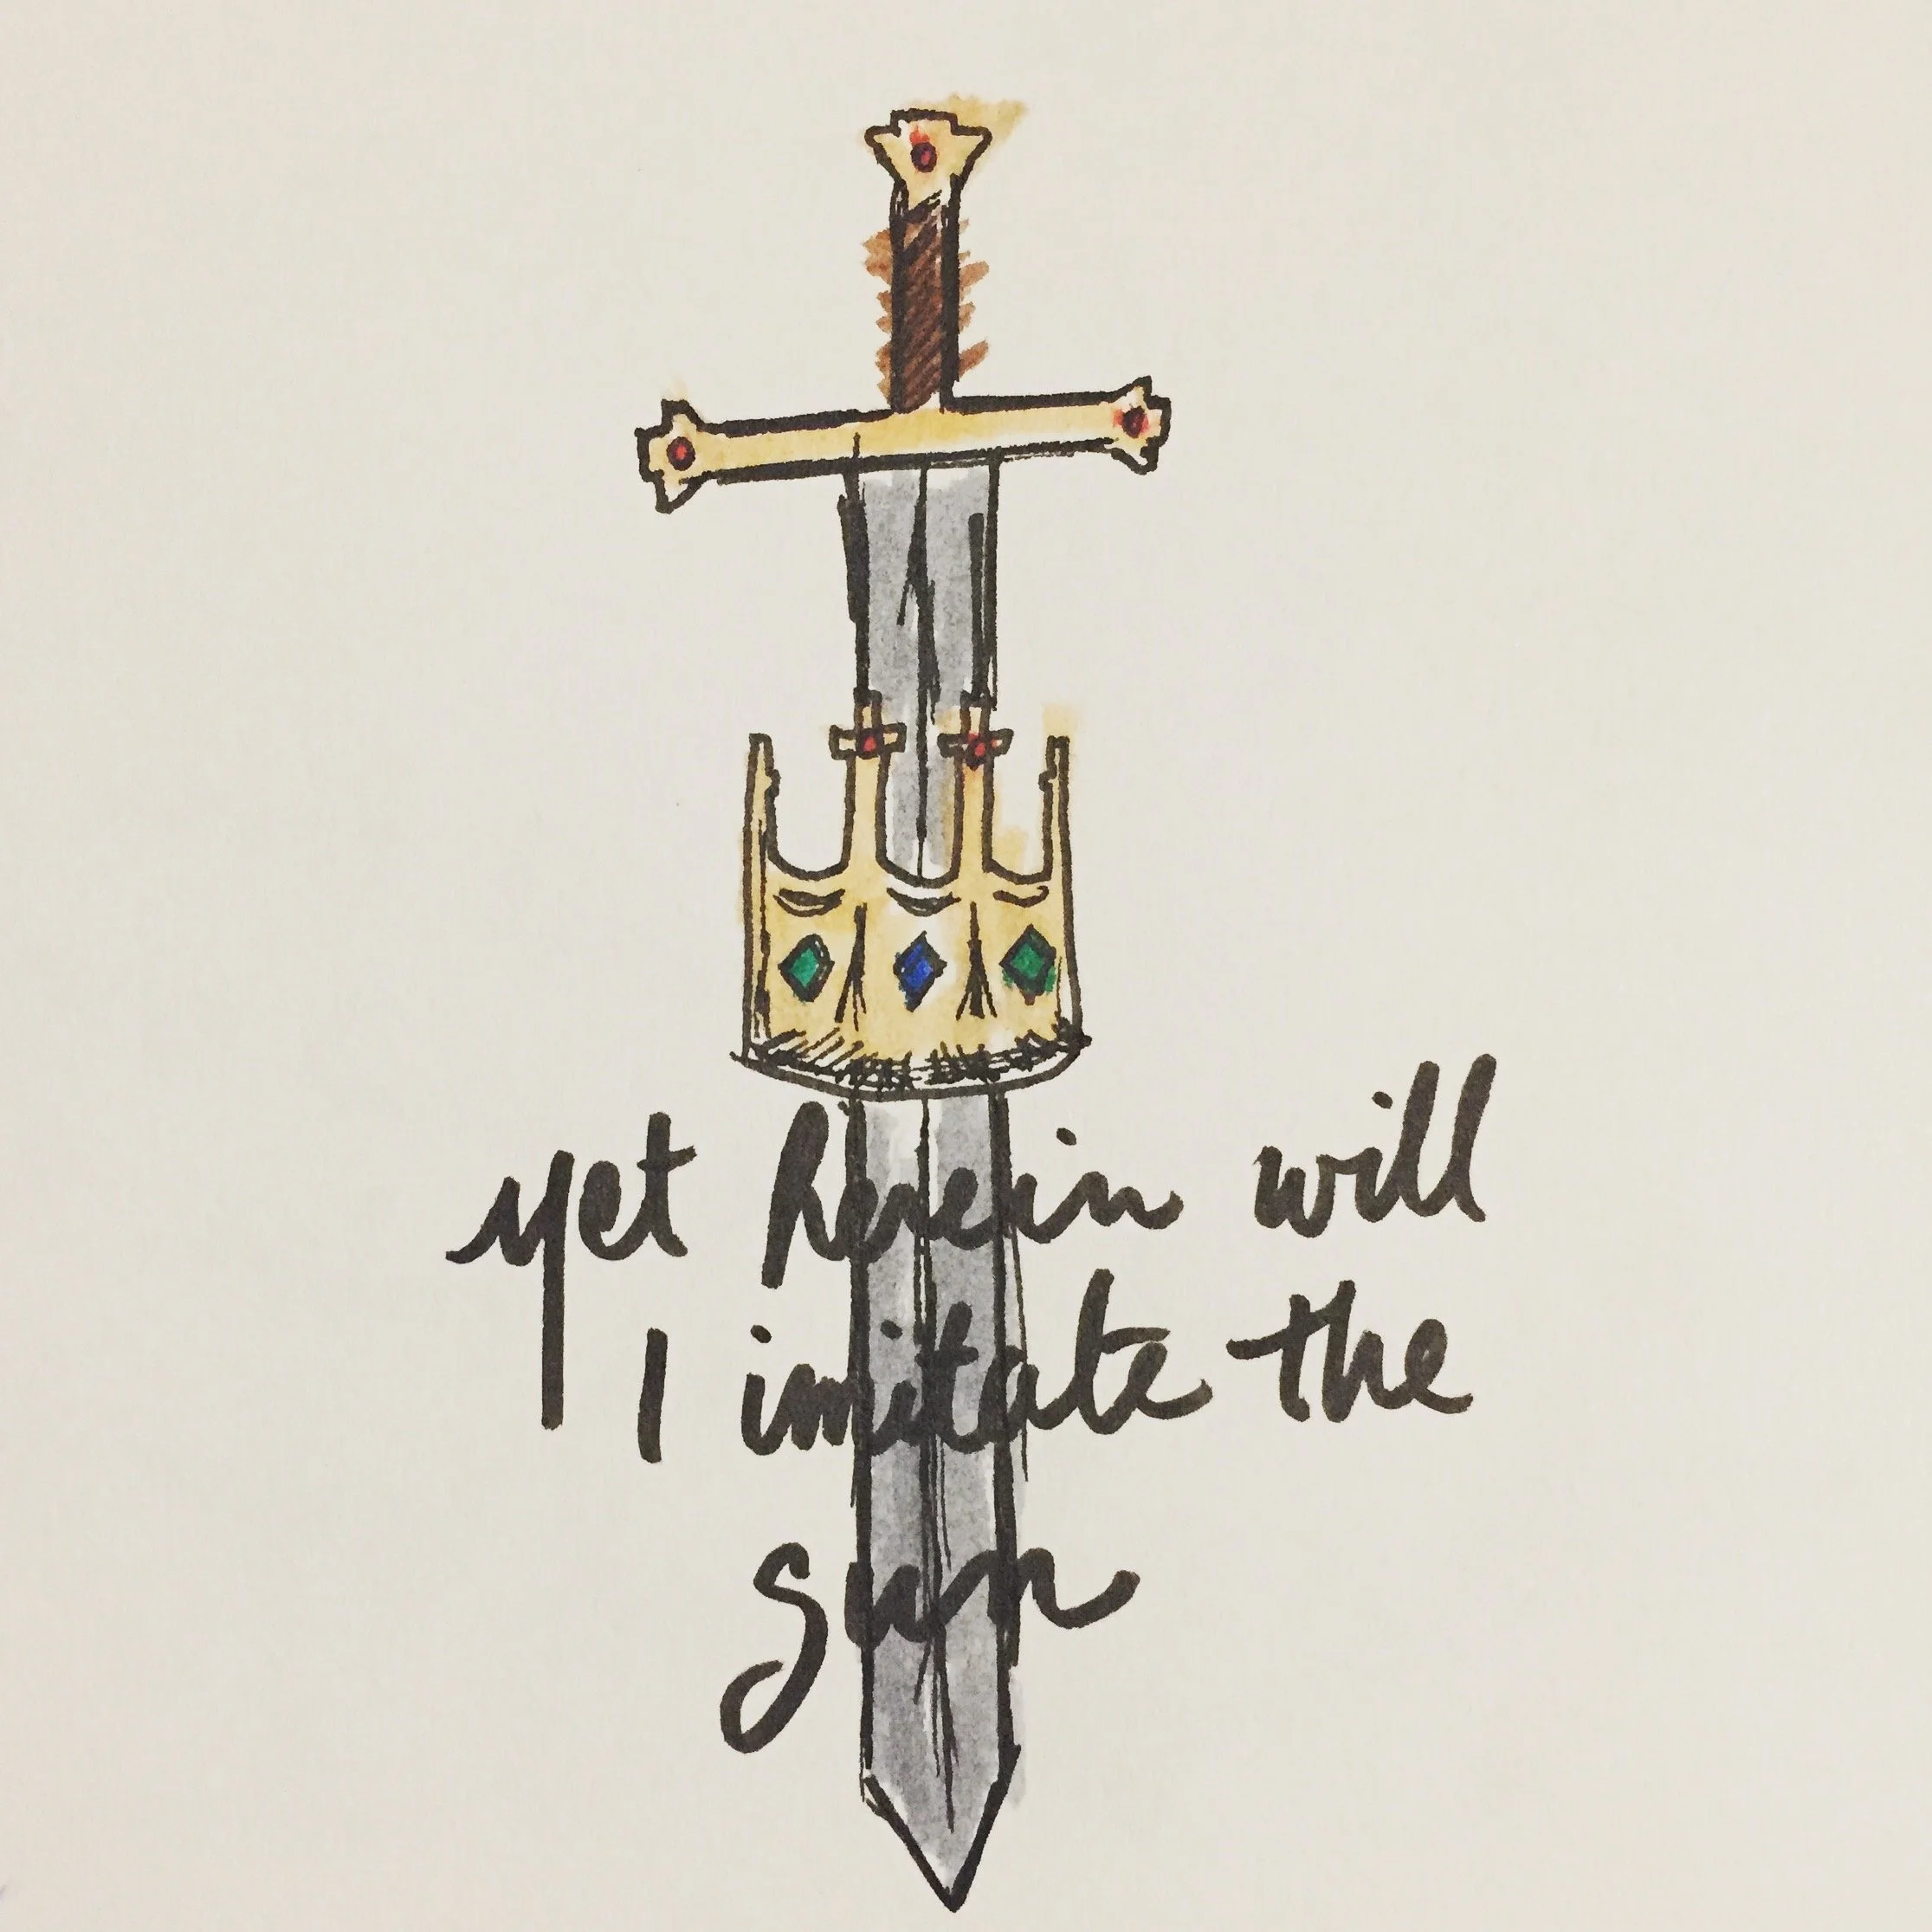 yet herein will
I imitate the
sun